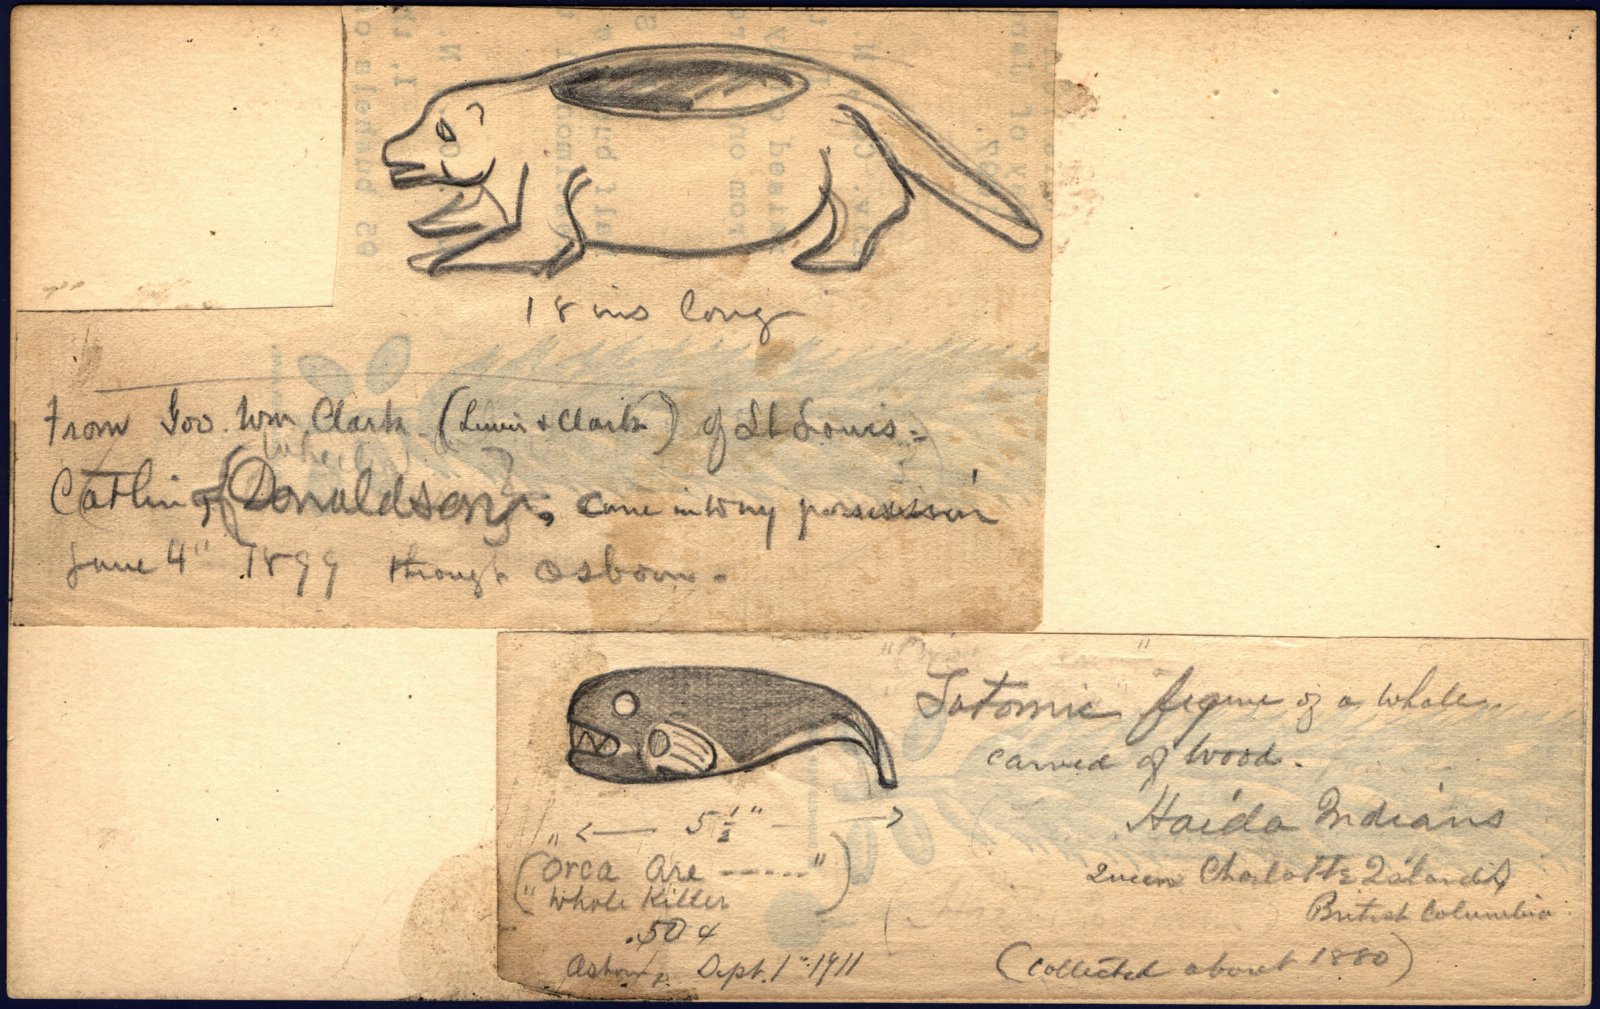 18 ins long
From Gov. Wm Clark (Lewis & Clark) of St Louis.
Catlin of (Donaldson), came into my possession
June 4" 1899 through Osborn.
Totomic figure of a whale
carved of wood.
5 1/2"
Haida Indians
("Orca Are -----")
"Whale Killer
Queen Charlotte Islands
British Columbia
.50 4
Sept. 1" 1911
(collected about 1880)